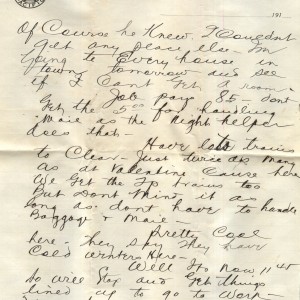 191
Of Course he Knew I Couldnt
get any place else - I'm
going to Every house in
town tomorrow and see
if I Cant Get a room -
Job pays 85 - dont
Get the 5.00 for handling
Mail as the night helper
does that -
Have lots trains
to Clear - Just twice as many
as at Valentine Cause here
We Get the Fp trains too
But Dont think it as
long as dont have to handle
Baggage & Mail -
Pretty Cool
here - They say They have
Cold winters Here -
Will Its now 11 45
So will Stop and Get things
lined up to go to Work -